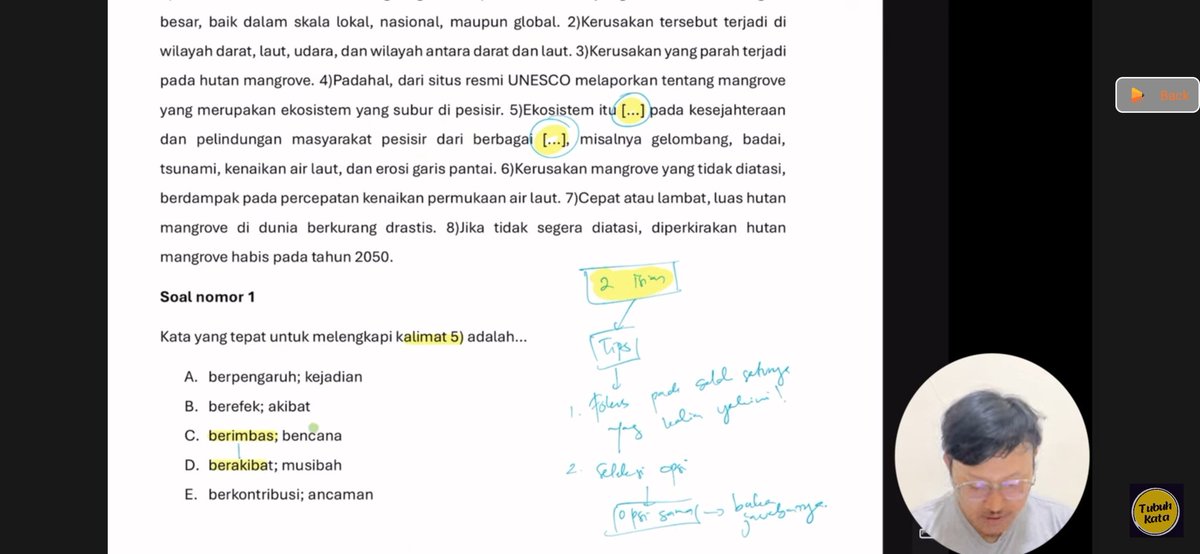 besar, baik dalam skala lokal, nasional, maupun global. 2)Kerusakan tersebut terjadi di
wilayah darat, laut, udara, dan wilayah antara darat dan laut. 3)Kerusakan yang parah terjadi
pada hutan mangrove. 4)Padahal, dari situs resmi UNESCO melaporkan tentang mangrove
yang merupakan ekosistem yang subur di pesisir. 5)Ekosistem itu [...] pada kesejahteraan
dan pelindungan masyarakat pesisir dari berbagai [...], misalnya gelombang, badai,
tsunami, kenaikan air laut, dan erosi garis pantai. 6)Kerusakan mangrove yang tidak diatasi,
berdampak pada percepatan kenaikan permukaan air laut. 7)Cepat atau lambat, luas hutan
mangrove di dunia berkurang drastis. 8)Jika tidak segera diatasi, diperkirakan hutan
mangrove habis pada tahun 2050.
Soal nomor 1
Kata yang tepat untuk melengkapi kalimat 5) adalah...
A. berpengaruh; kejadian
B. berefek; akibat
C. berimbas; bencana
D. berakibat; musibah
E. berkontribusi; ancaman
2
Tips
1. Fokus pada salah satunya
yang kalian yakini!
2. Seleksi opsi
Opsi sama → bukan
jawabannya.
Back
Tubuh
Kata